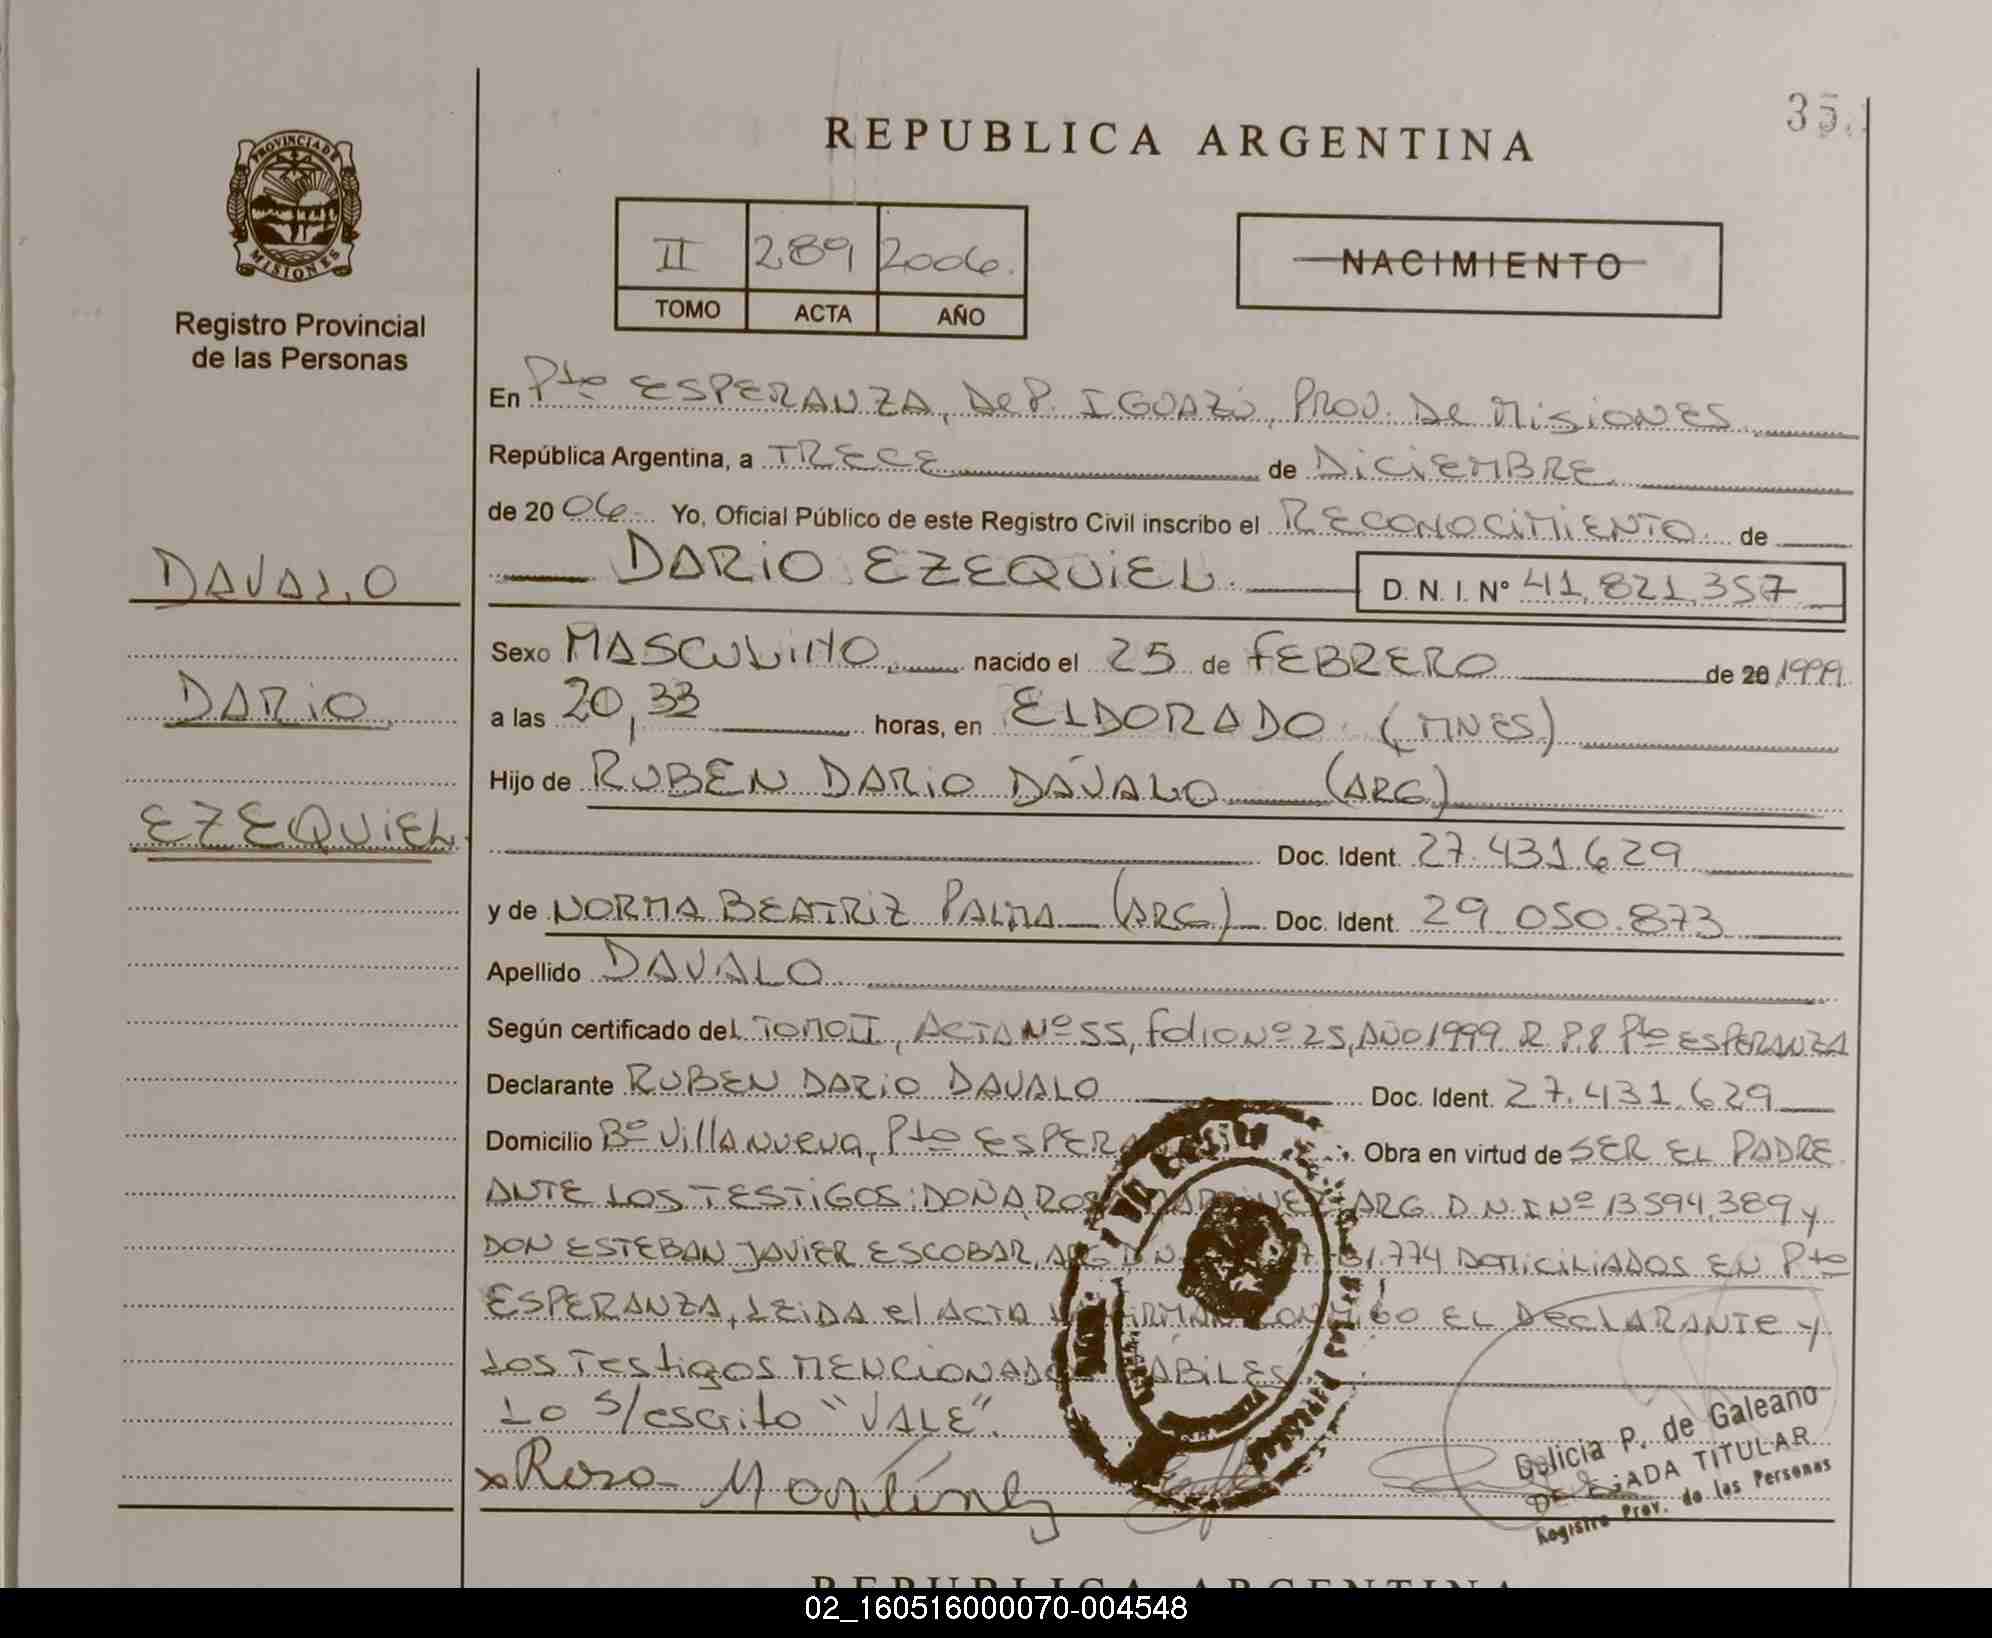 35.
REPUBLICA ARGENTINA
PROVINCIA DE
MISIONES
Registro Provincial
de las Personas
II 289 2006.
TOMO ACTA AÑO
NACIMIENTO
En Pto ESPERANZA, DEP. IGUAZÚ, PROV. DE MISIONES
República Argentina, a TRECE de DICIEMBRE
de 2006 Yo, Oficial Público de este Registro Civil inscribo el RECONOCIMIENTO de
DAVALO
DARIO EZEQUIEL D. N. I. Nº 41.821.357
Sexo MASCULINO nacido el 25 de FEBRERO de 20 1999
DARIO
a las 20,33 horas, en ELDORADO (MNES)
Hijo de RUBEN DARIO DÁVALO (ARG)
EZEQUIEL
Doc. Ident. 27.431.629
y de NORMA BEATRIZ PALMA (ARG) Doc. Ident. 29.050.873
Apellido DAVALO
Según certificado del TOMO II, ACTA Nº 55, folio Nº 25, AÑO 1999 R.P.P Pto ESPERANZA
Declarante RUBEN DARIO DAVALO Doc. Ident. 27.431.629
Domicilio Bº VillA NUEVA, Pto ESPERA Obra en virtud de SER EL PADRE
ANTE LOS TESTIGOS: DOÑA ROSA MARTINEZ ARG D.N.I Nº 13.594.389 y
DON ESTEBAN JAVIER ESCOBAR, ARG D.N 774 DOMICILIADOS EN Pto
ESPERANZA, LEIDA el ACTA LA FIRMAN CONMIGO EL DECLARANTE Y
LOS TESTIGOS MENCIONADOS HÁBILES
Lo S/escrito "VALE".
x Rosa Martínez
Delicia P. de Galeano
DELEGADA TITULAR
Registro Prov. de las Personas
REPUBLICA ARGENTINA
02_160516000070-004548